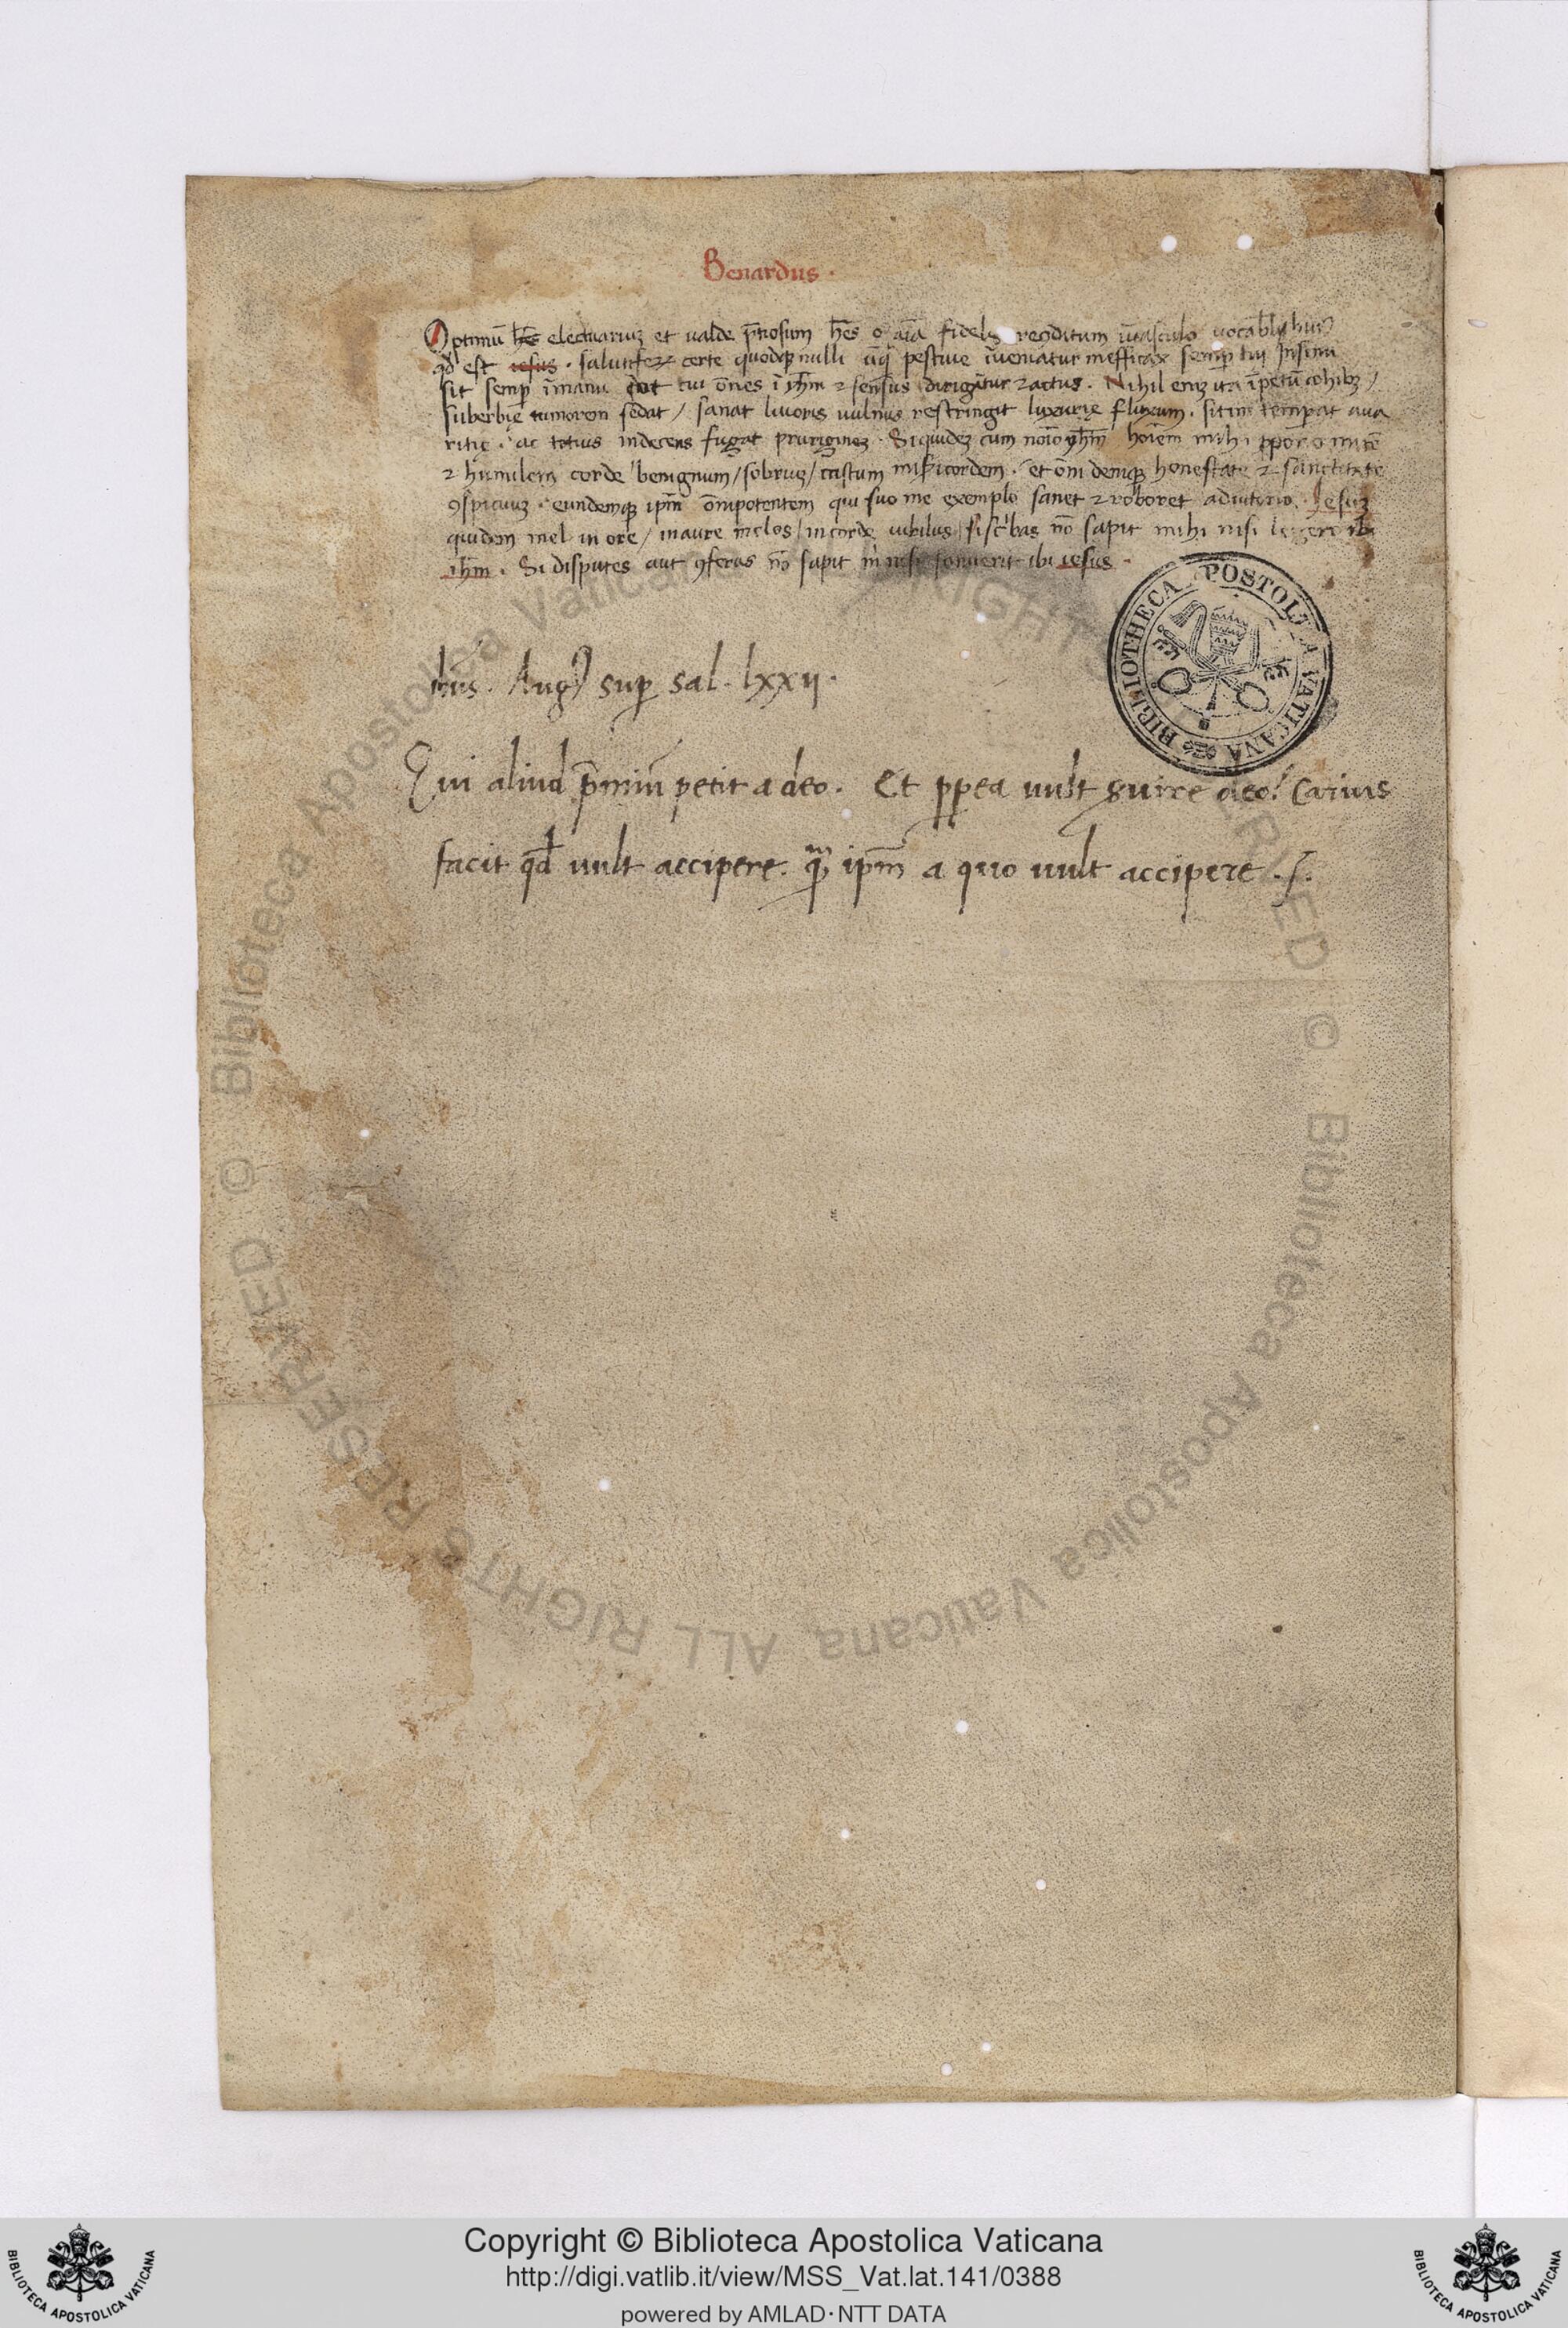 Benardus ·
Optimū hēs electuariuȝ et ualde p̄tiosum hēs o aīa fidelis recōditum ī uasculo uocabli huiꝰ
qđ est iesus · salutifeȝ certe quodqꝫ nulli ūqꝫ pestiue īueniatur inefficax semꝑ tui Insinu
sit semꝑ ī manu tui ōnes ī yhm̄ ⁊ sensus dirigātur ⁊ actus · Nihil eniȝ ita īpetū cohibȝ /
suberbię tumorem sedat / sanat liuoris uulnus restringit luxurię fluxum · sitim temperat aua
ritię · ac totius indecens fugat pruriginez · Siquidez cum noīo yhm̄ hoīem mihi ꝓpono mitē
⁊ humilem corde benignum / sobriuȝ / castum mīsicordem · et om̄i demqꝫ honestate ⁊ sanctitate
ꝯspicuuȝ · eundemqꝫ ipm̄ ōmipotentem qui suo me exemplo sanet ⁊ roboret adiutorio · Iesuȝ
quidem mel in ore / in aure melos / in corde iubilus / si sc̄bas nō sapit mihi nisi legero ibi
ihm̄ · Si disputes aut ꝯferas nō sapit m̄ nisi sonuerit ibi iesus ·
Augꝰ suꝑ sal · lxxij ·
Qui aliud p̄miū petit a deo · Et ꝓpea uult seruire deo · Carius
facit qđ uult accipere · qꝫ ipm̄ a quo uult accipere ·/·
BIBLIOTHECA APOSTOLICA VATICANA
© Biblioteca Apostolica Vaticana ALL RIGHTS RESERVED © Biblioteca Apostolica Vaticana ALL RIGHTS RESERVED
BIBLIOTECA APOSTOLICA VATICANA
Copyright © Biblioteca Apostolica Vaticana
http://digi.vatlib.it/view/MSS_Vat.lat.141/0388
powered by AMLAD·NTT DATA
BIBLIOTECA APOSTOLICA VATICANA